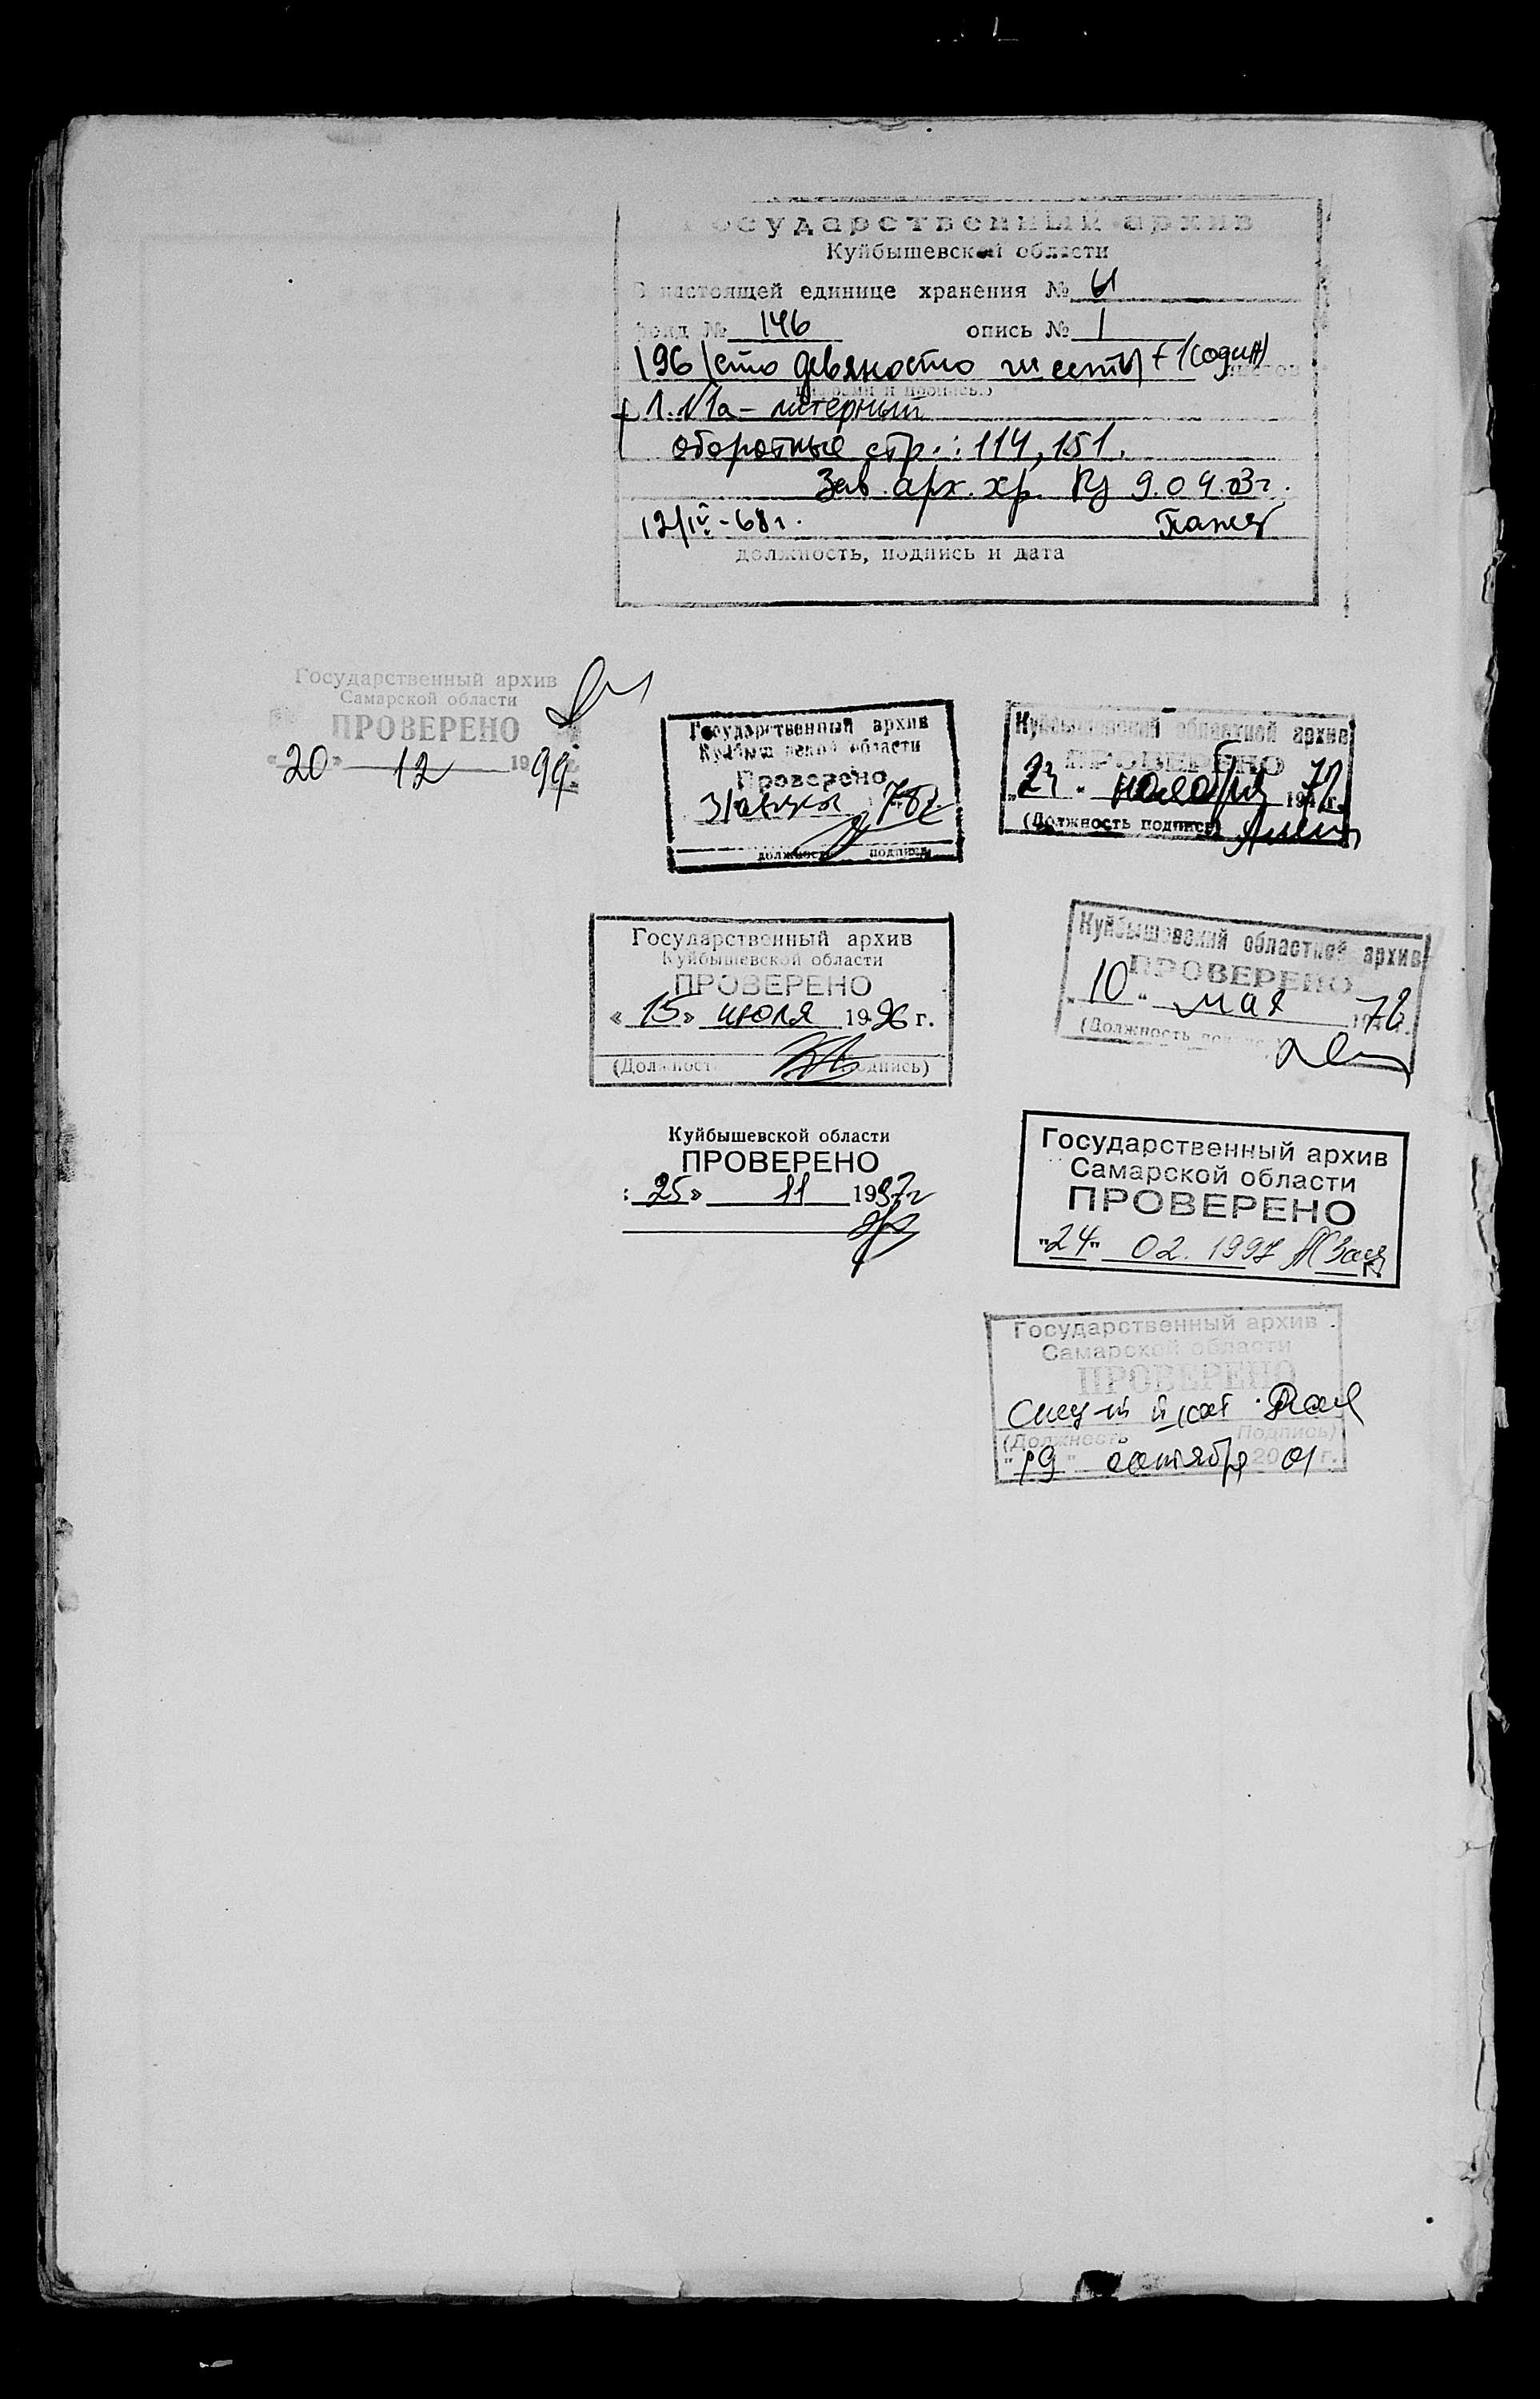 Государственный архив
Куйбышевской области
В настоящей единице хранения №
фонд № 146 опись № 1
196 (сто девяносто шесть) + 1 (один) листов
цифрами и прописью
+ л. N 1а - литерный
оборотные стр.: 114, 151.
Зав. арх. хр. 9.04.03г.
12/IV-68г.
должность, подпись и дата
Государственный архив
Самарской области
ПРОВЕРЕНО
«20» 12 1999
Государственный архив
Куйбышевской области
Проверено
78г.
должность подпись
Куйбышевский областной архив
ПРОВЕРЕНО
ноября 194 г.
(Должность подпись)
Государственный архив
Куйбышевской области
ПРОВЕРЕНО
«15» июля 19 г.
(Должность подпись)
Куйбышевский областной архив
ПРОВЕРЕНО
"10" мая
(Должность подпись)
Куйбышевской области
ПРОВЕРЕНО
25» 11 19
Государственный архив
Самарской области
ПРОВЕРЕНО
"24" 02. 1997 г.
Государственный архив
Самарской области
ПРОВЕРЕНО
(Должность Подпись)
"19" сентября 2001 г.